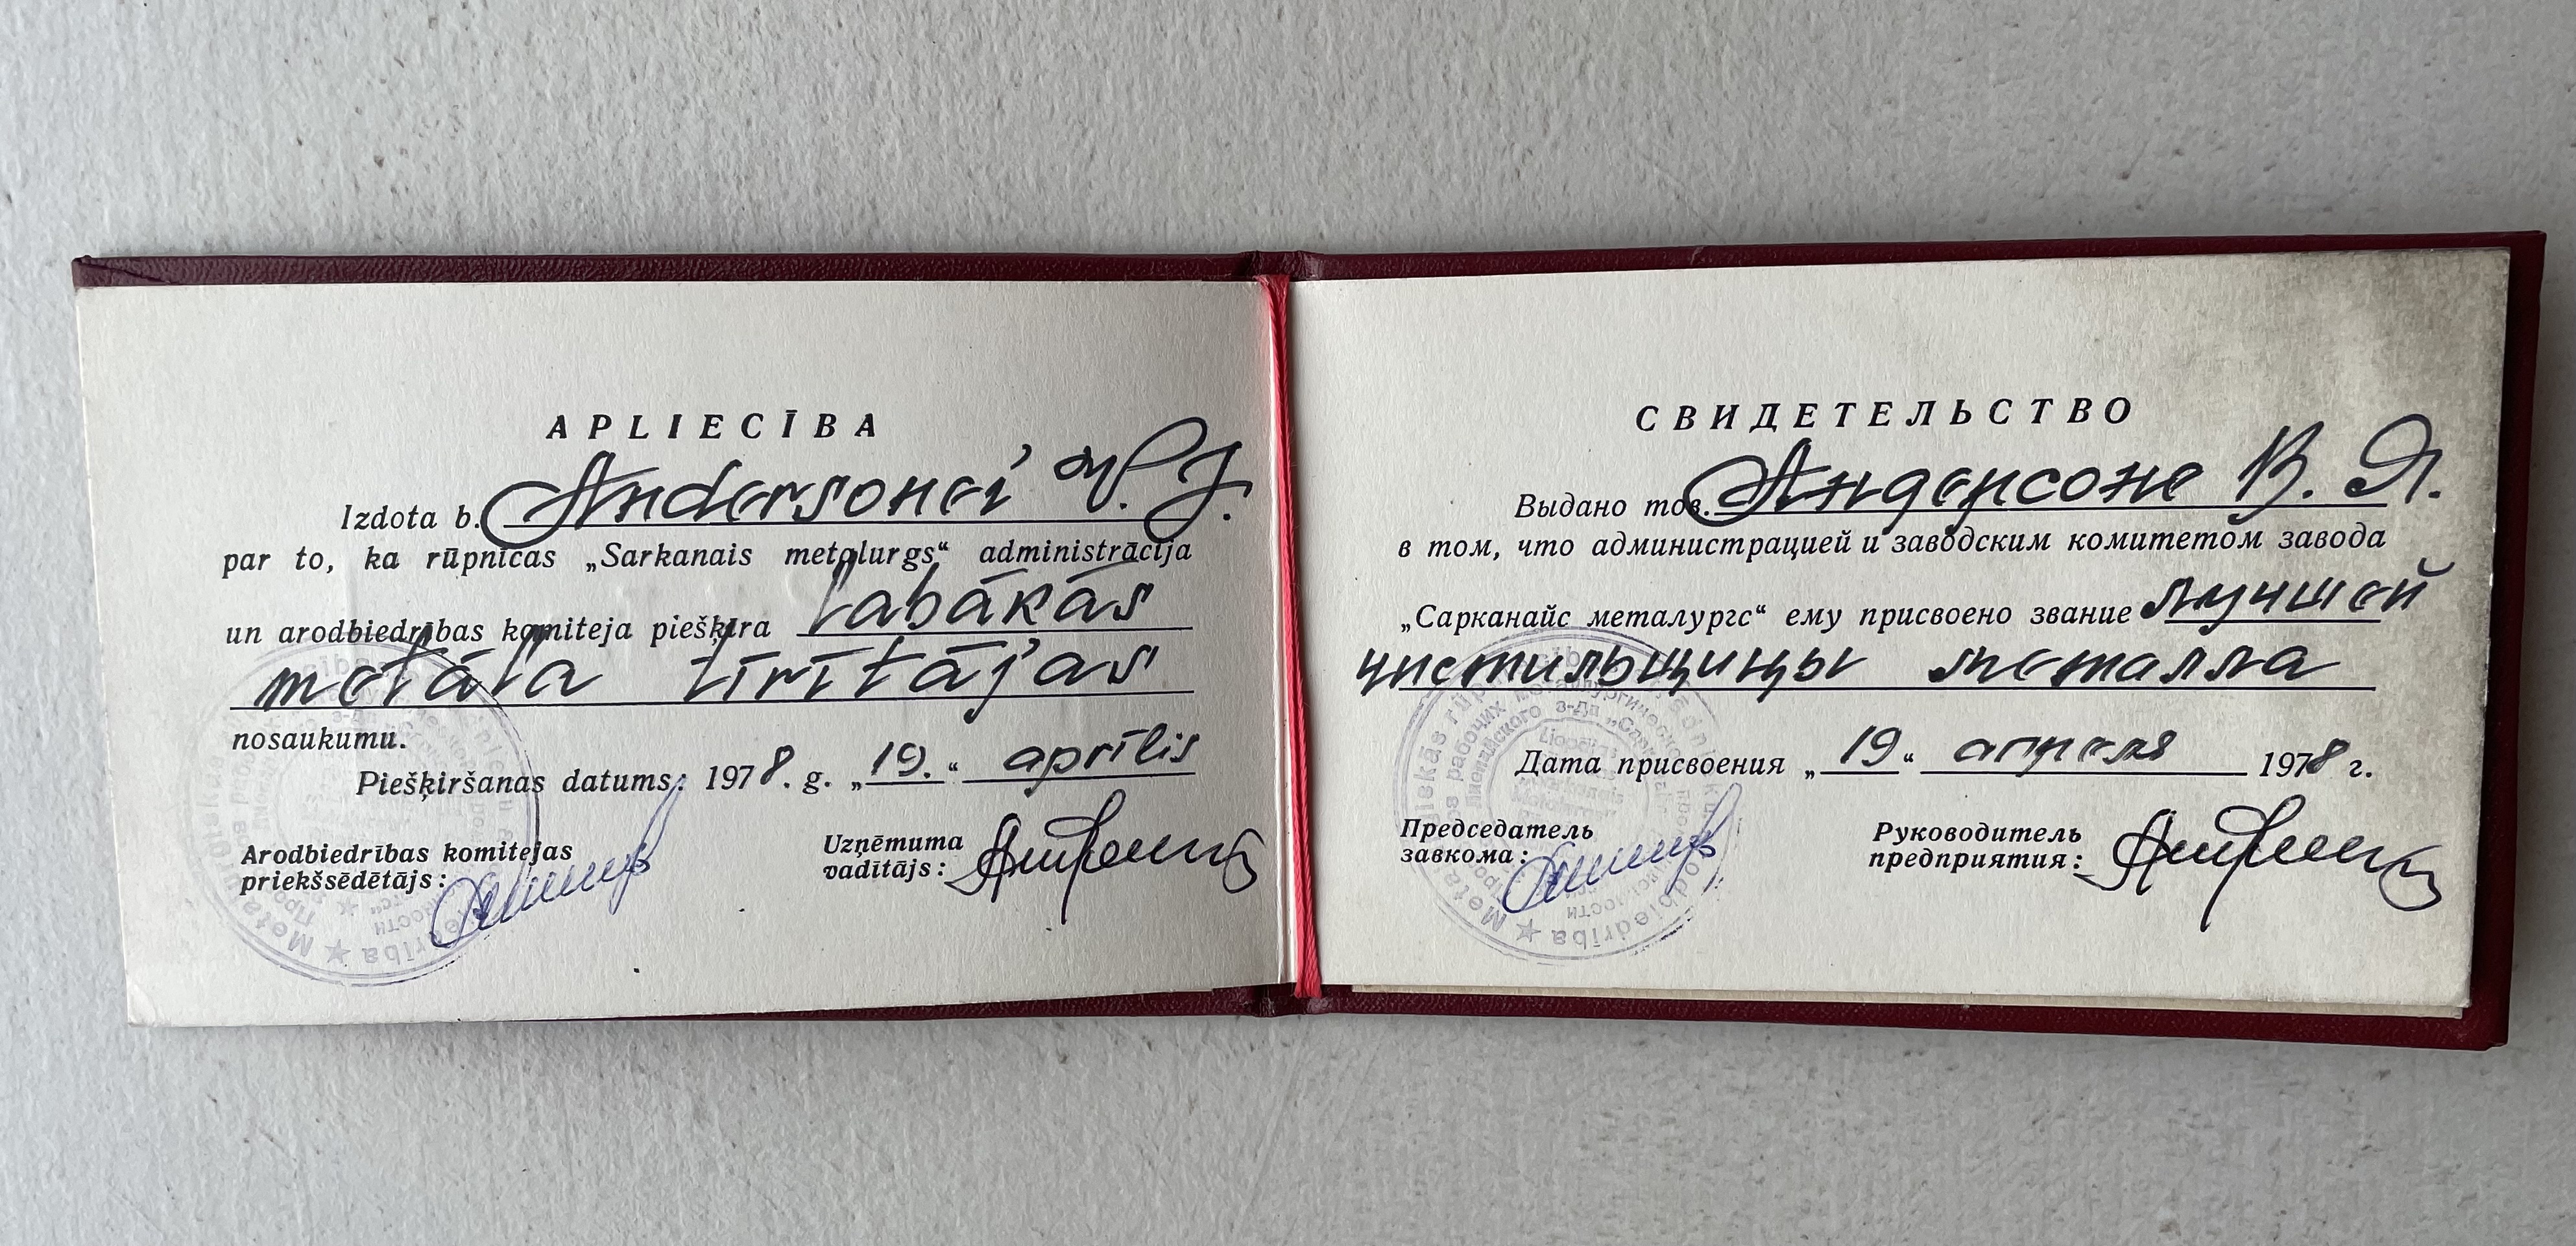 APLIECĪBA
Izdota b. Andersonei V. J.
par to, ka rūpnīcas „Sarkanais metalurgs“ administrācija
un arodbiedrības komiteja piešķīra labākās
metāla tīrītājas
nosaukumu.
Piešķiršanas datums: 1978. g. „19.“ aprīlis
Arodbiedrības komitejas
priekšsēdētājs:
Uzņēmuma
vadītājs:
СВИДЕТЕЛЬСТВО
Выдано тов. Андерсоне В. Я.
в том, что администрацией и заводским комитетом завода
„Сарканайс металургс“ ему присвоено звание лучшей
чистильщицы металла
Дата присвоения „19“ апреля 1978 г.
Председатель
завкома:
Руководитель
предприятия: